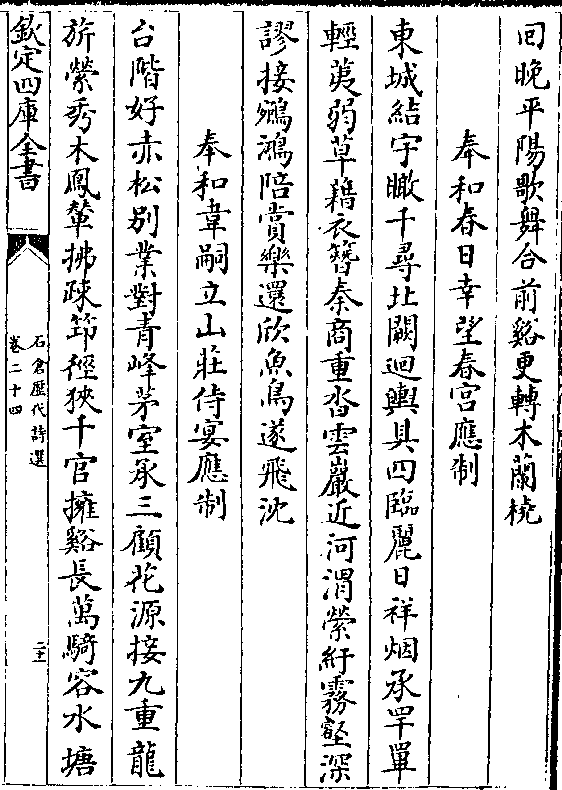 回晚平陽歌舞合前谿更轉木蘭橈
奉和春日幸望春宮應制
東城結宇瞰千尋北闕迴輿具四臨麗日祥烟承罕罼
輕荑弱草藉衣簪秦商重沓雲巖近河渭縈紆霧壑深
謬接鵷鴻陪賞樂還欣魚鳥遂飛沈
奉和韋嗣立山莊侍宴應制
台階好赤松別業對青峰茅室承三顧花源接九重龍
旂縈秀木鳳輦拂疎筇徑狹千官擁谿長萬騎容水塘
欽定四庫全書
石倉歷代詩選
卷二十四